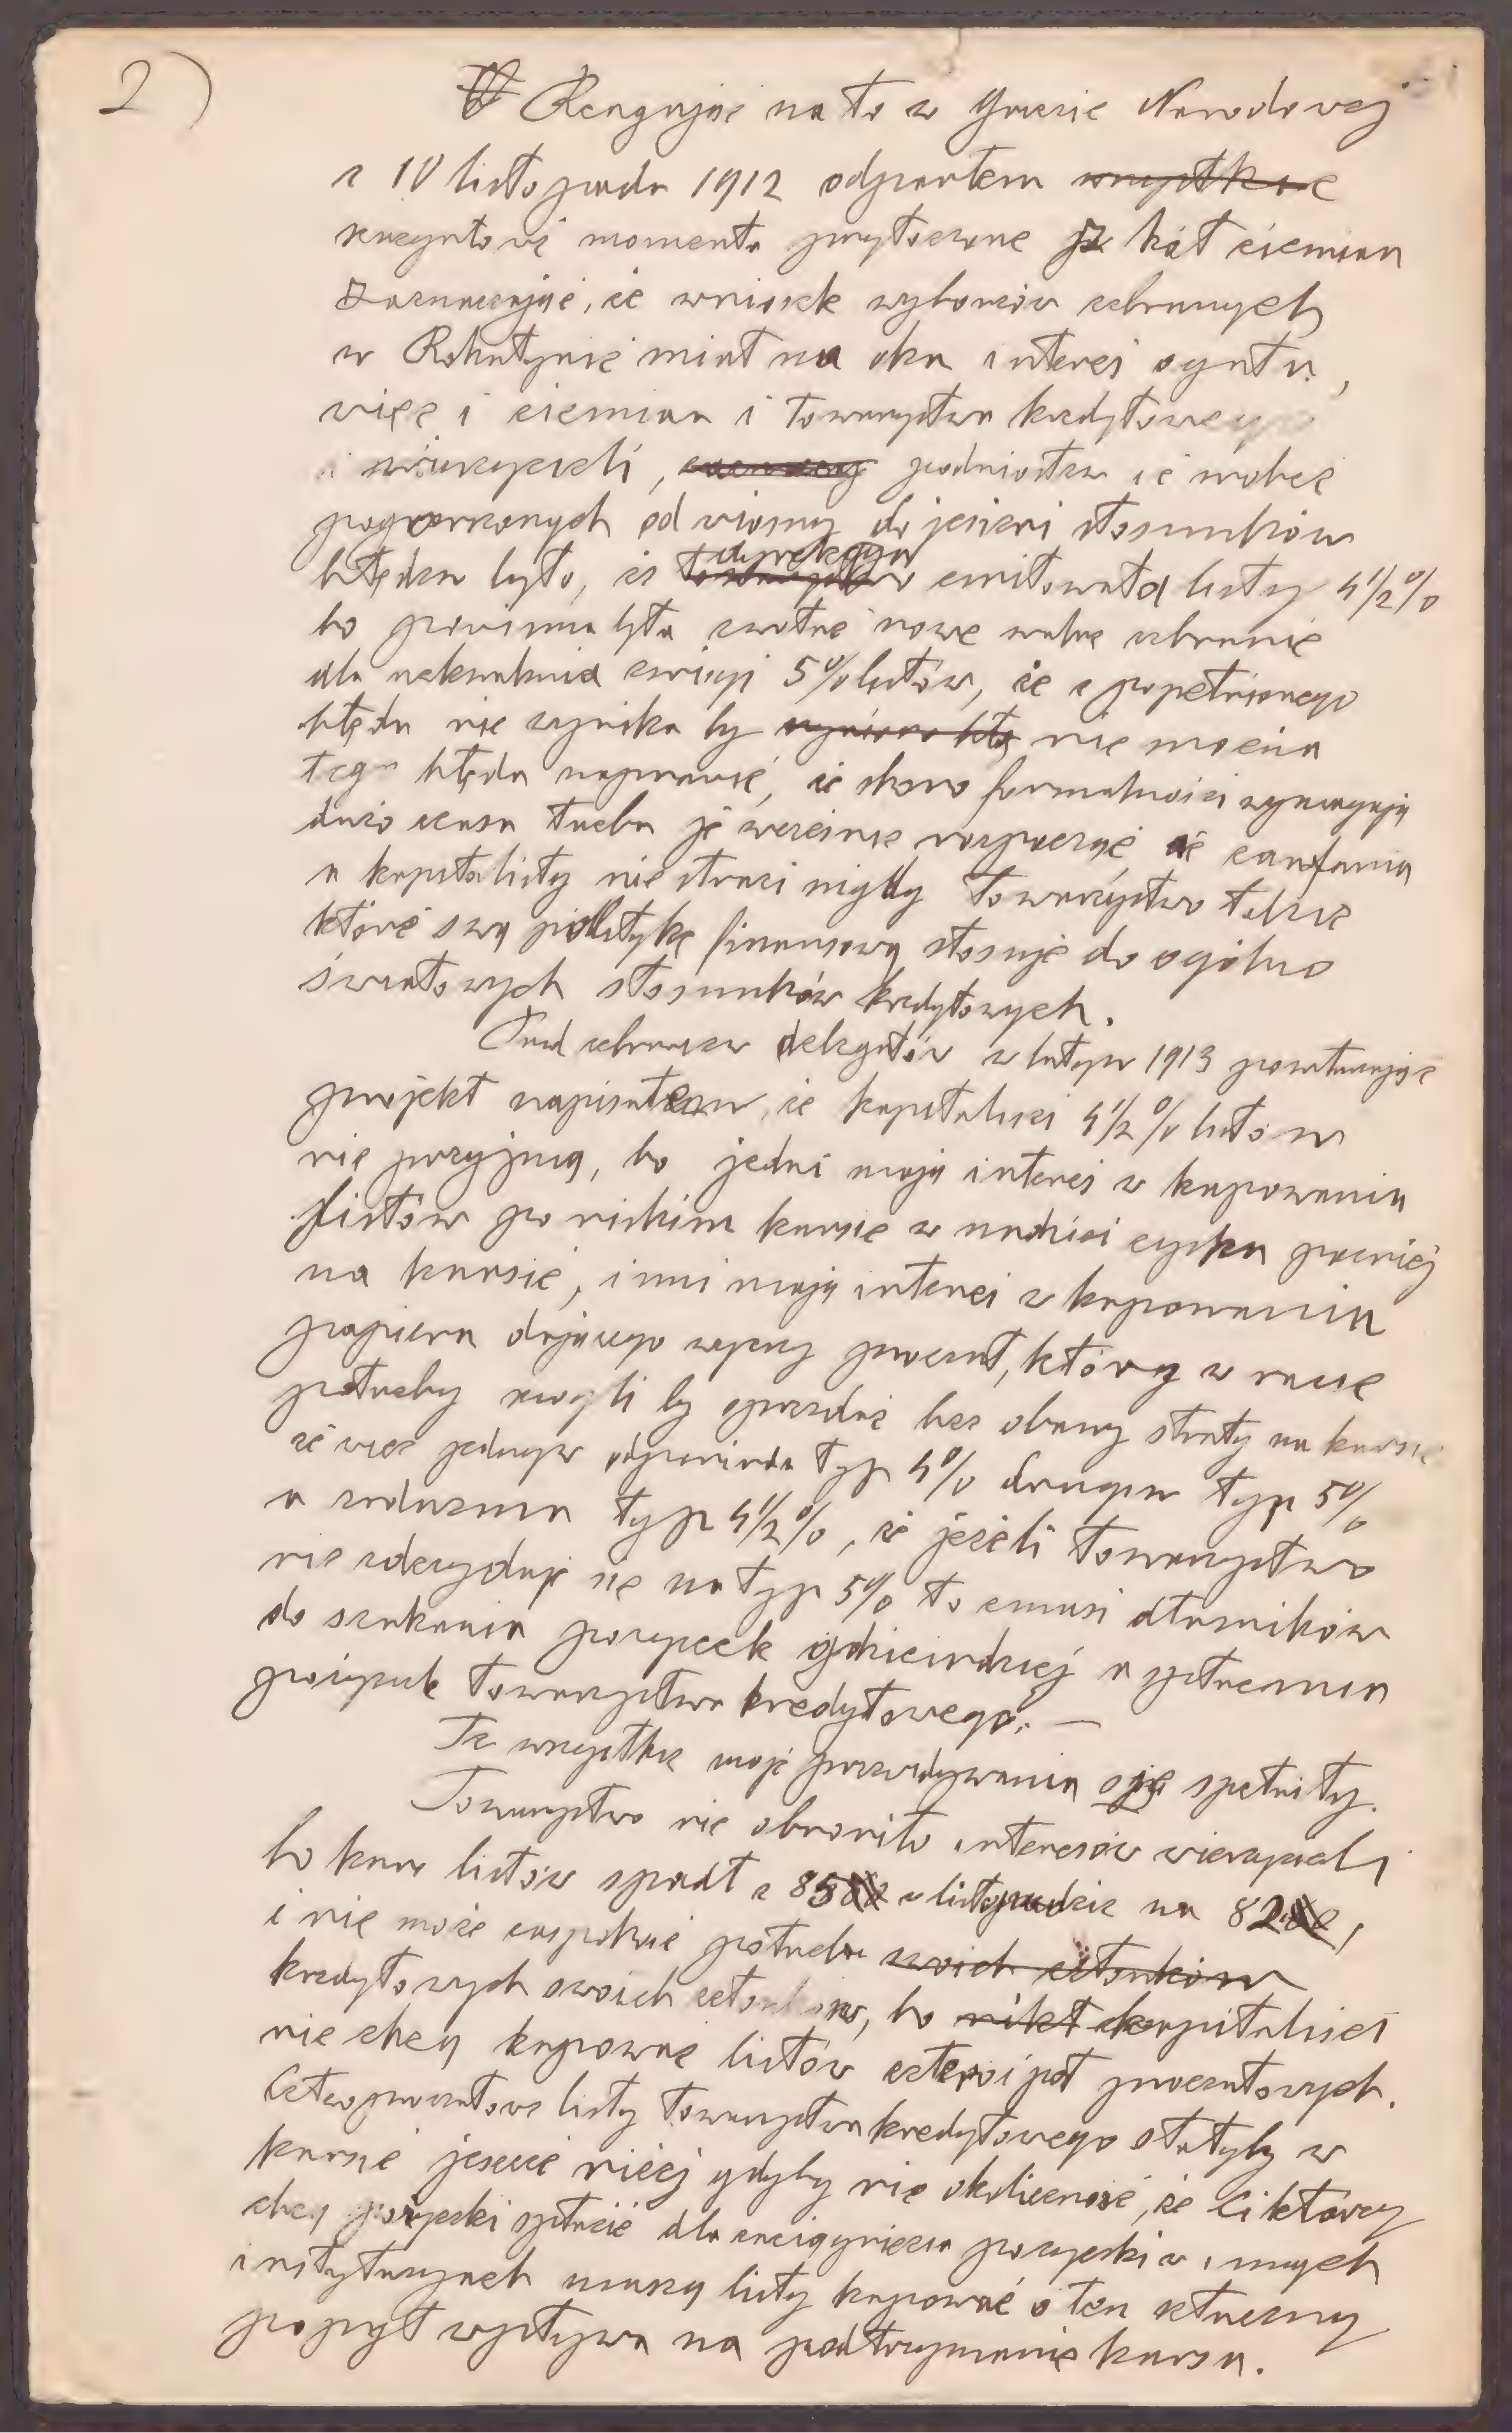 2)
Reagując na to w Gazecie Narodowej
z 10 listopada 1912 odparłem wszystkie
zarzuty i momenta przytoczone kół ziemian
zaznaczając, że wniosek wyborców zebranych
w Rohatynie miał na oku interes ogółu,
więc i ziemian i Towarzystwa kredytowego
i wierzycieli, podniosłem że wobec
pogorszonych od wiosny do jesieni stosunków
błędem było, że dyrekcya emitowała listy 4 1/2 %
bo powinna była zwołać nowe walne zebranie
dla uchwalenia emisyi 5% listów, że z popełnionego
błędu nie wynika by nie można
tego błędu naprawić, że skoro formalności wymagają
dużo czasu trzeba je wcześnie rozpocząć, że zaufania
u kapitalisty nie straci nigdy Towarzystwo takie
które swą politykę finansową stosuje do ogólno
światowych stosunków kredytowych.
Przed zebraniem delegatów w lutym 1913 powtarzając
projekt napisałem, że kapitaliści 4 1/2 % listów
nie przyjmą, bo jedni mają interes w kupowaniu
listów po niskim kursie w nadziei zysku później
na kursie, inni mają interes w kupowaniu
papieru dającego wyższy procent, który w razie
potrzeby mogli by sprzedać bez obawy straty na kursie
że więc jednym odpowiada typ 4% drugim typ 5%
a żadnemu typ 4 1/2 %, że jeżeli Towarzystwo
nie zdecyduje się na typ 5% to zmusi dłużników
do szukania pożyczek gdzieindziej a spłacenia
pożyczek Towarzystwa kredytowego. —
Te wszystkie moje przewidywania się spełniły.
Towarzystwo nie obroniło interesów wierzycieli
bo kurs listów spadł z 85 w listopadzie na 82,
i nie może zaspokoić potrzeb swoich członków
kredytowych swoich członków, bo nikt kapitaliści
nie chcą kupować listów cztery i pół procentowych.
Czteroprocentowe listy Towarzystwa kredytowego stałyby w
kursie jeszcze niżej gdyby nie okoliczność, że Ci którzy
chcą pożyczki spłacić dla zaciągnięcia pożyczki w innych
instytucyach muszą listy kupować a ten sztuczny
popyt wpływa na podtrzymanie kursu.